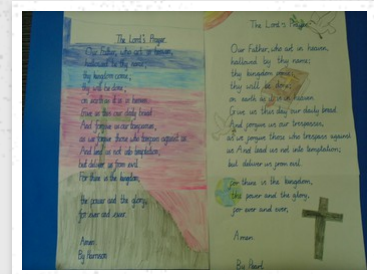 The Lord's Prayer
Our Father, who art in heaven,
hallowed be thy name;
thy kingdom come;
thy will be done;
on earth as it is in heaven.
Give us this day our daily bread.
And forgive us our trespasses,
as we forgive those who trespass against us.
And lead us not into temptation;
but deliver us from evil.
For thine is the kingdom,
the power and the glory,
for ever and ever.
Amen.
By Harrison
The Lord's Prayer
Our Father, who art in heaven,
hallowed by thy name;
thy kingdom come;
thy will be done;
on earth as it is in heaven.
Give us this day our daily bread.
And forgive us our trespasses,
as we forgive those who trespass against
us. And lead us not into temptation;
but deliver us from evil.
For thine is the kingdom,
the power and the glory,
for ever and ever,
Amen.
By Pearl